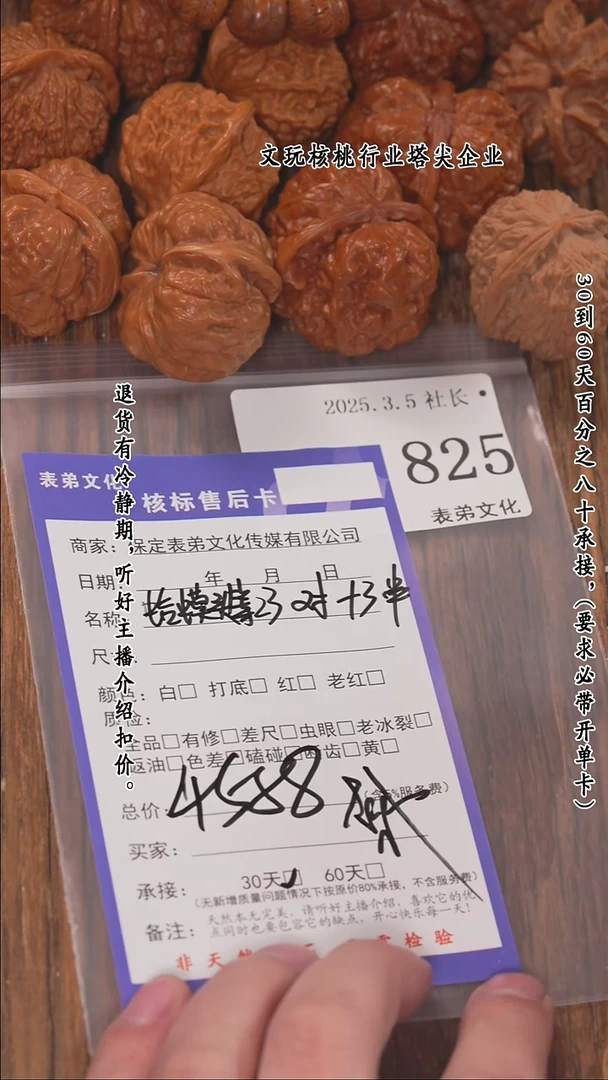 文玩核桃行业塔尖企业
30到60天百分之八十承接，（要求必带开单卡）
退货有冷静期，听好主播介绍扣价。
2025.3.5 社长
825
表弟文化
表弟文化
核标售后卡
商家：保定表弟文化传媒有限公司
日期 年 月 日
名称 23对+3半
尺
颜色：白□ 打底□ 红□ 老红□
质检：
全品□有修□差尺□虫眼□老冰裂□
返油□色差□磕碰□断齿□黄□
总价 4588 (含5%服务费)
买家：
承接： 30天☑ 60天□
(无新增质量问题情况下按原价80%承接，不含服务费)
备注： 天然本无完美，请听好主播介绍，喜欢它的优
点同时也要包容它的缺点，开心快乐每一天！
非天 检验